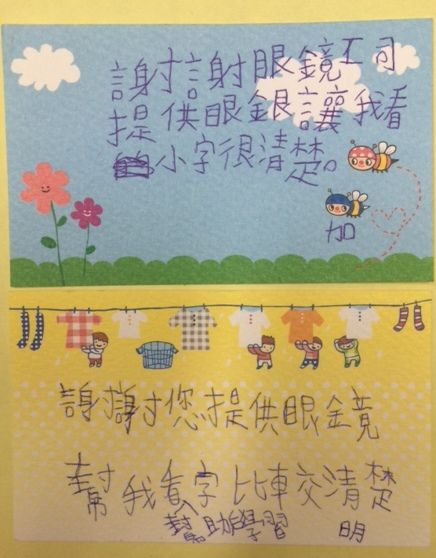 謝謝眼鏡工司
提供眼銀讓我看
小字很清楚。
加
謝謝您提供眼鏡
幫我看字比車交清楚
幫助學習 明